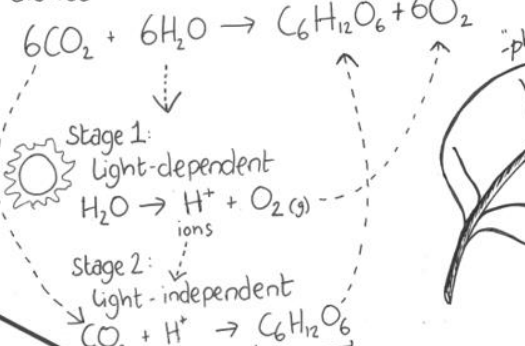 6CO₂ + 6H₂O → C₆H₁₂O₆ + 6O₂
Stage 1:
Light-dependent
H₂O → H⁺ + O₂ (g)
ions
Stage 2:
Light-independent
CO₂ + H⁺ → C₆H₁₂O₆